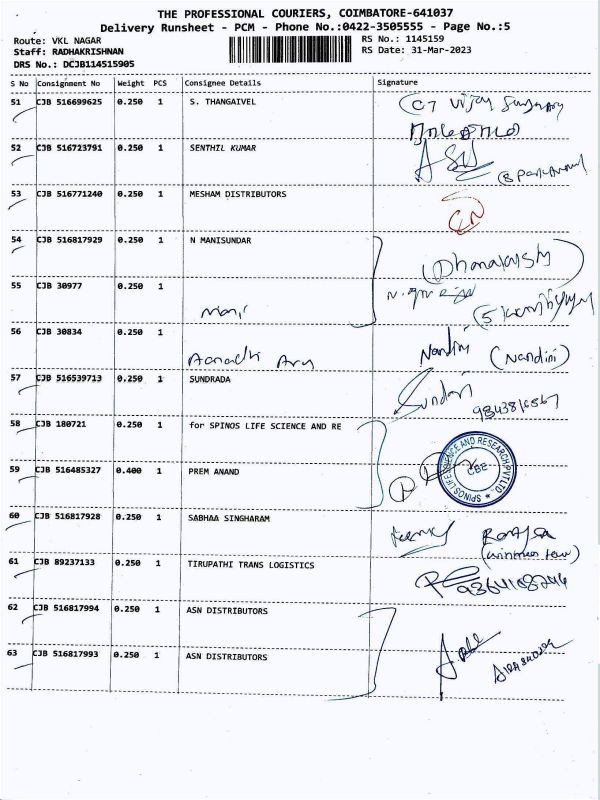 THE PROFESSIONAL COURIERS, COIMBATORE-641037
Delivery Runsheet - PCM - Phone No.:0422-3505555 - Page No.:5
Route: VKL NAGAR
RS No.: 1145159
Staff: RADHAKRISHNAN
RS Date: 31-Mar-2023
DRS No.: DCJB114515905
S No Consignment No Weight PCS Consignee Details Signature
51 CJB 516699625 0.250 1 S. THANGAIVEL
52 CJB 516723791 0.250 1 SENTHIL KUMAR
53 CJB 516771240 0.250 1 MESHAM DISTRIBUTORS
54 CJB 516817929 0.250 1 N MANISUNDAR
55 CJB 30977 0.250 1
56 CJB 30834 0.250 1
Nandini (Nandini)
57 CJB 516539713 0.250 1 SUNDRADA
Sundari
58 CJB 180721 0.250 1 for SPINOS LIFE SCIENCE AND RE
SPINOS LIFE SCIENCE AND RESEARCH PVT LTD.
CBE
59 CJB 516485327 0.400 1 PREM ANAND
60 CJB 516817928 0.250 1 SABHAA SINGHARAM
61 CJB 89237133 0.250 1 TIRUPATHI TRANS LOGISTICS
62 CJB 516817994 0.250 1 ASN DISTRIBUTORS
63 CJB 516817993 0.250 1 ASN DISTRIBUTORS